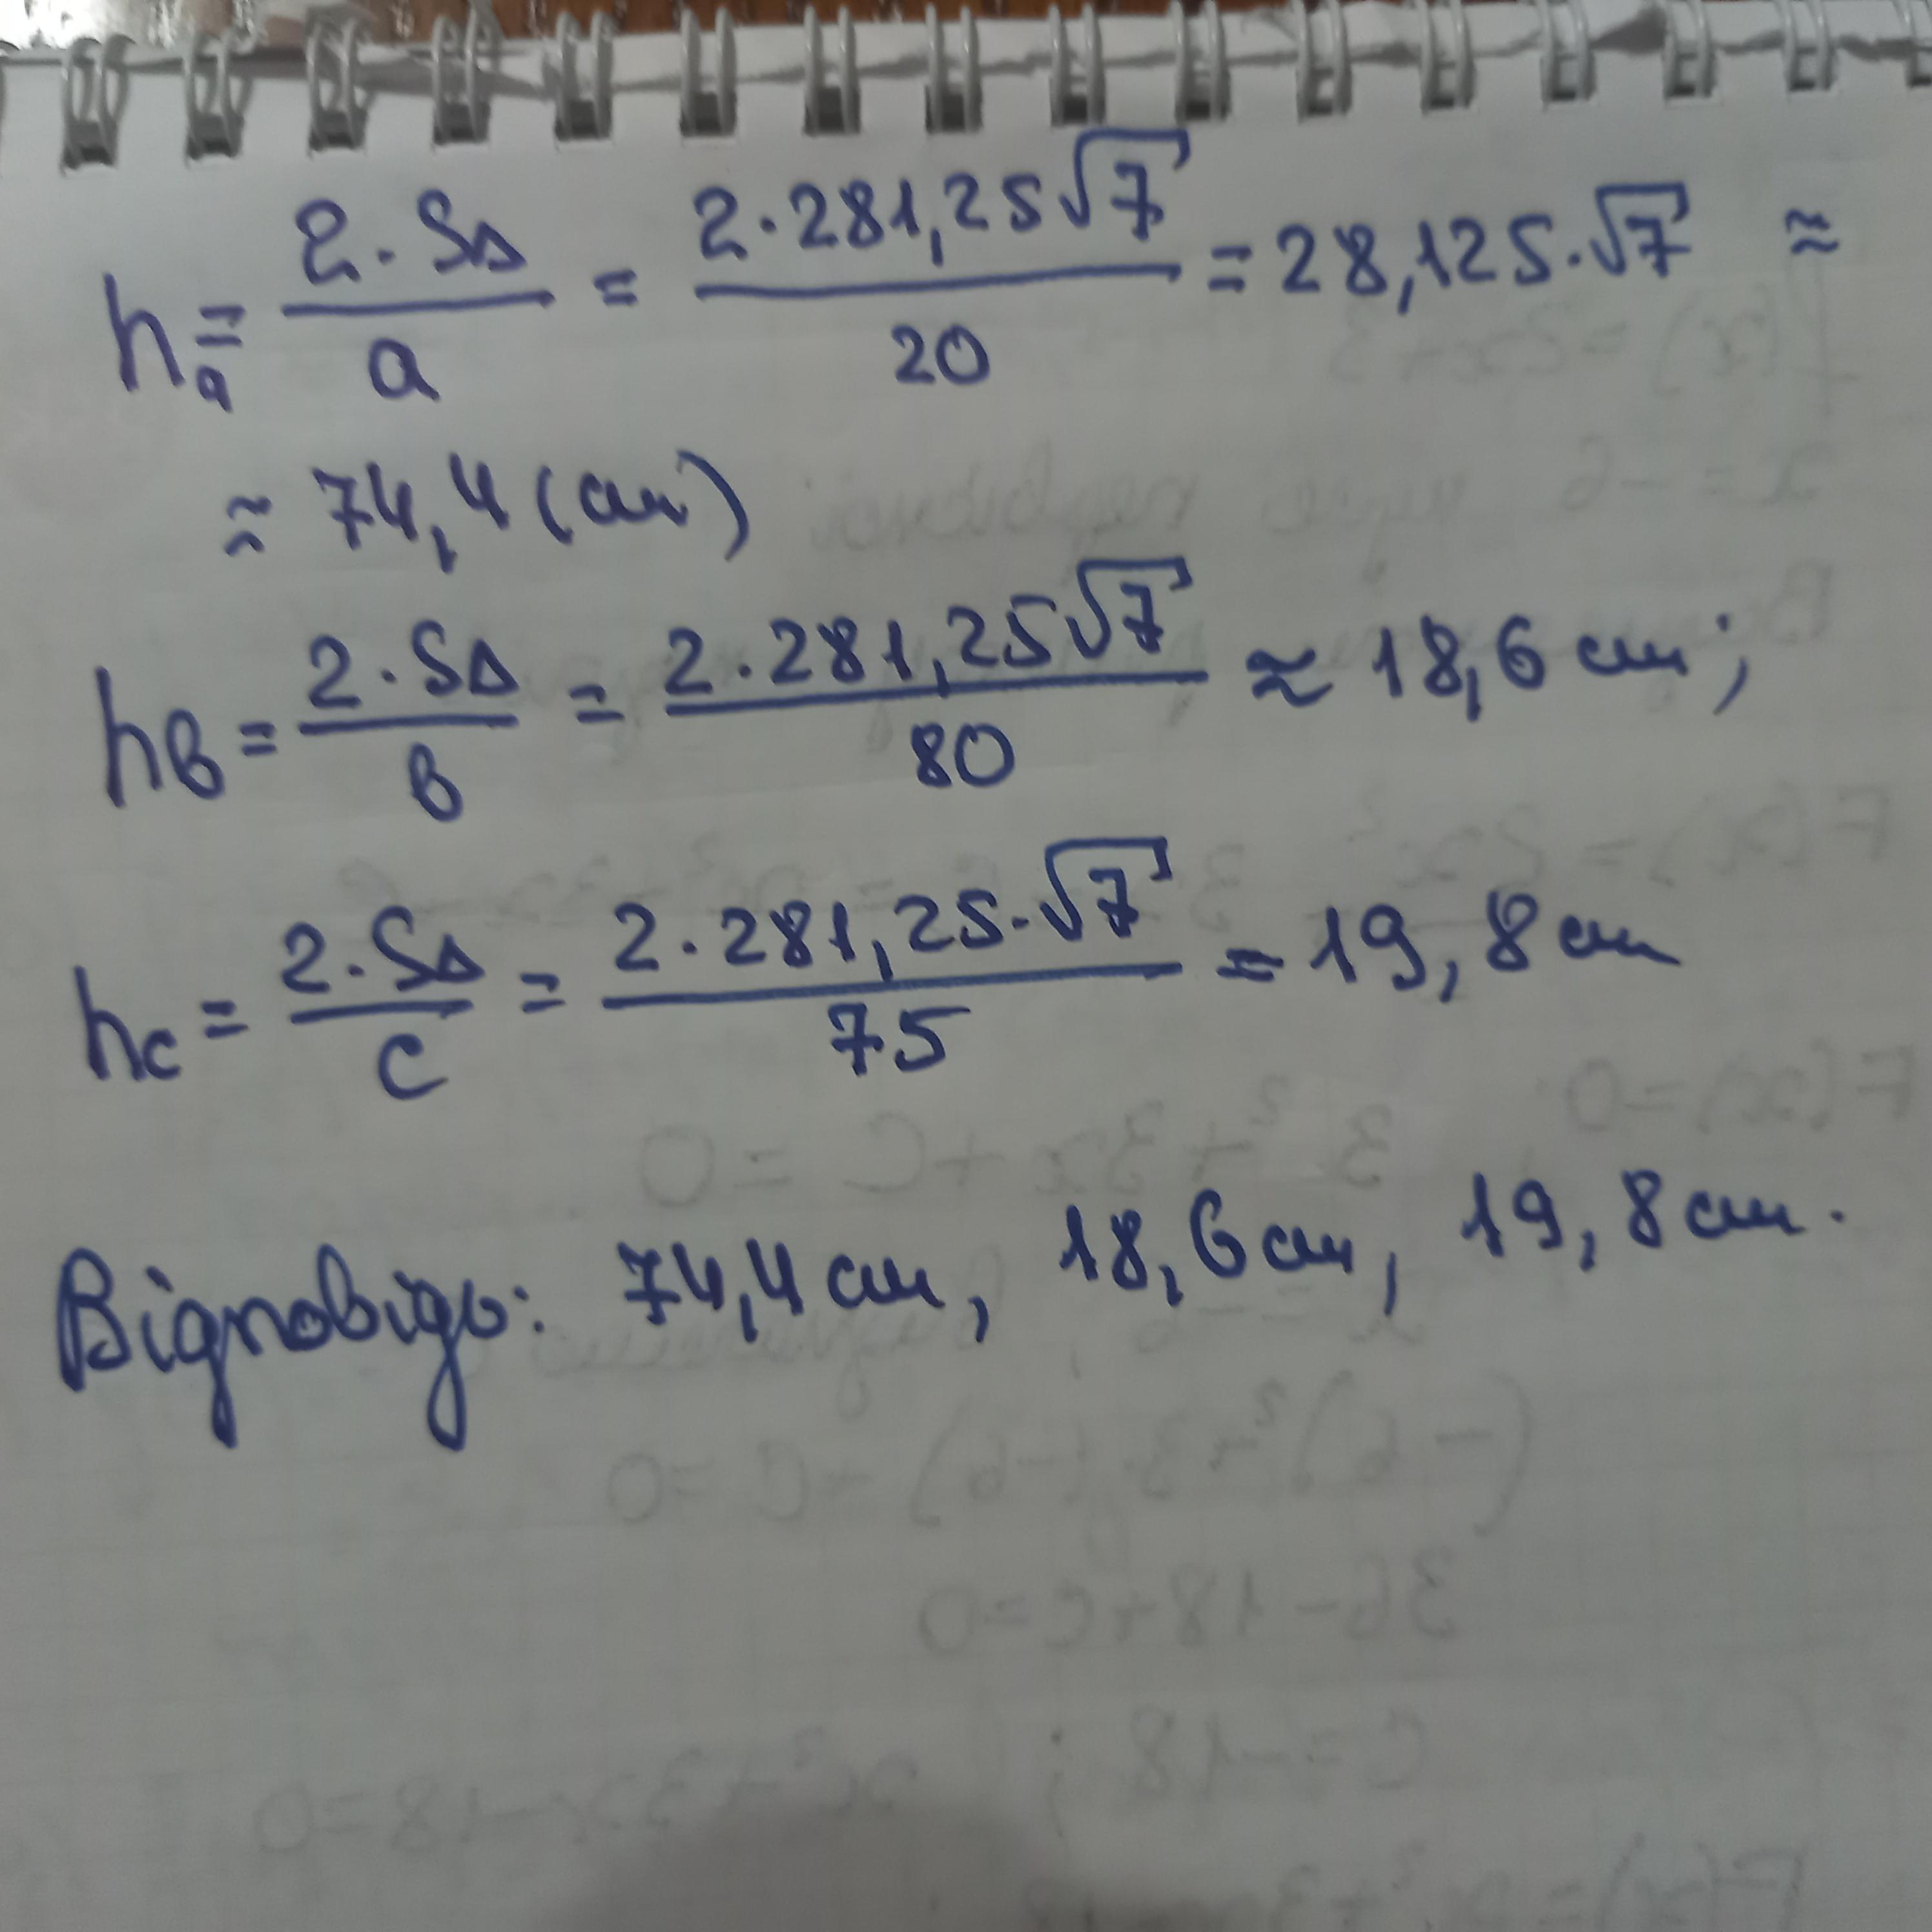 hₐ = 2·S△/a = 2·281,25√7/20 = 28,125·√7 ≈
≈ 74,4 (см)
hв = 2·S△/в = 2·281,25√7/80 ≈ 18,6 см;
hc = 2·S△/c = 2·281,25·√7/75 = 19,8 см
Відповідь: 74,4 см, 18,6 см, 19,8 см.